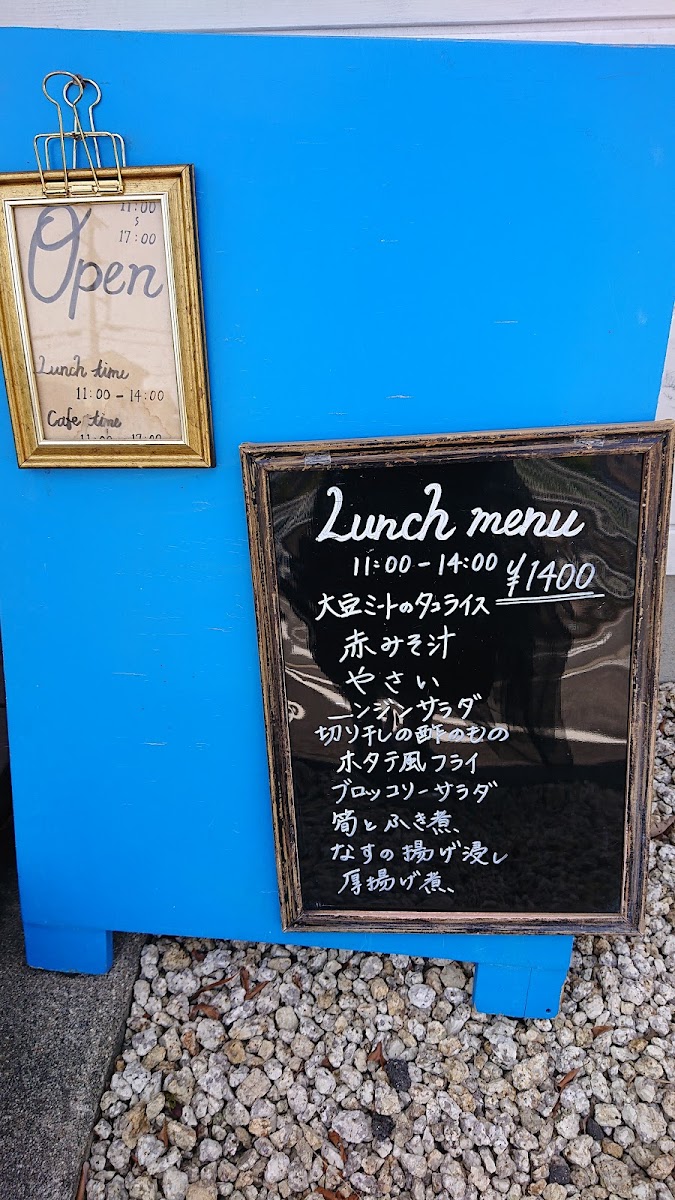 11:00
~
17:00
Open
Lunch time
11:00 - 14:00
Cafe time
11:00 - 17:00
Lunch menu
11:00 - 14:00 ¥1400
大豆ミートのタコライス
赤みそ汁
やさい
ニンジンサラダ
切り干しの酢のもの
ホタテ風フライ
ブロッコリーサラダ
筍とふき煮、
なすの揚げ浸し
厚揚げ煮、